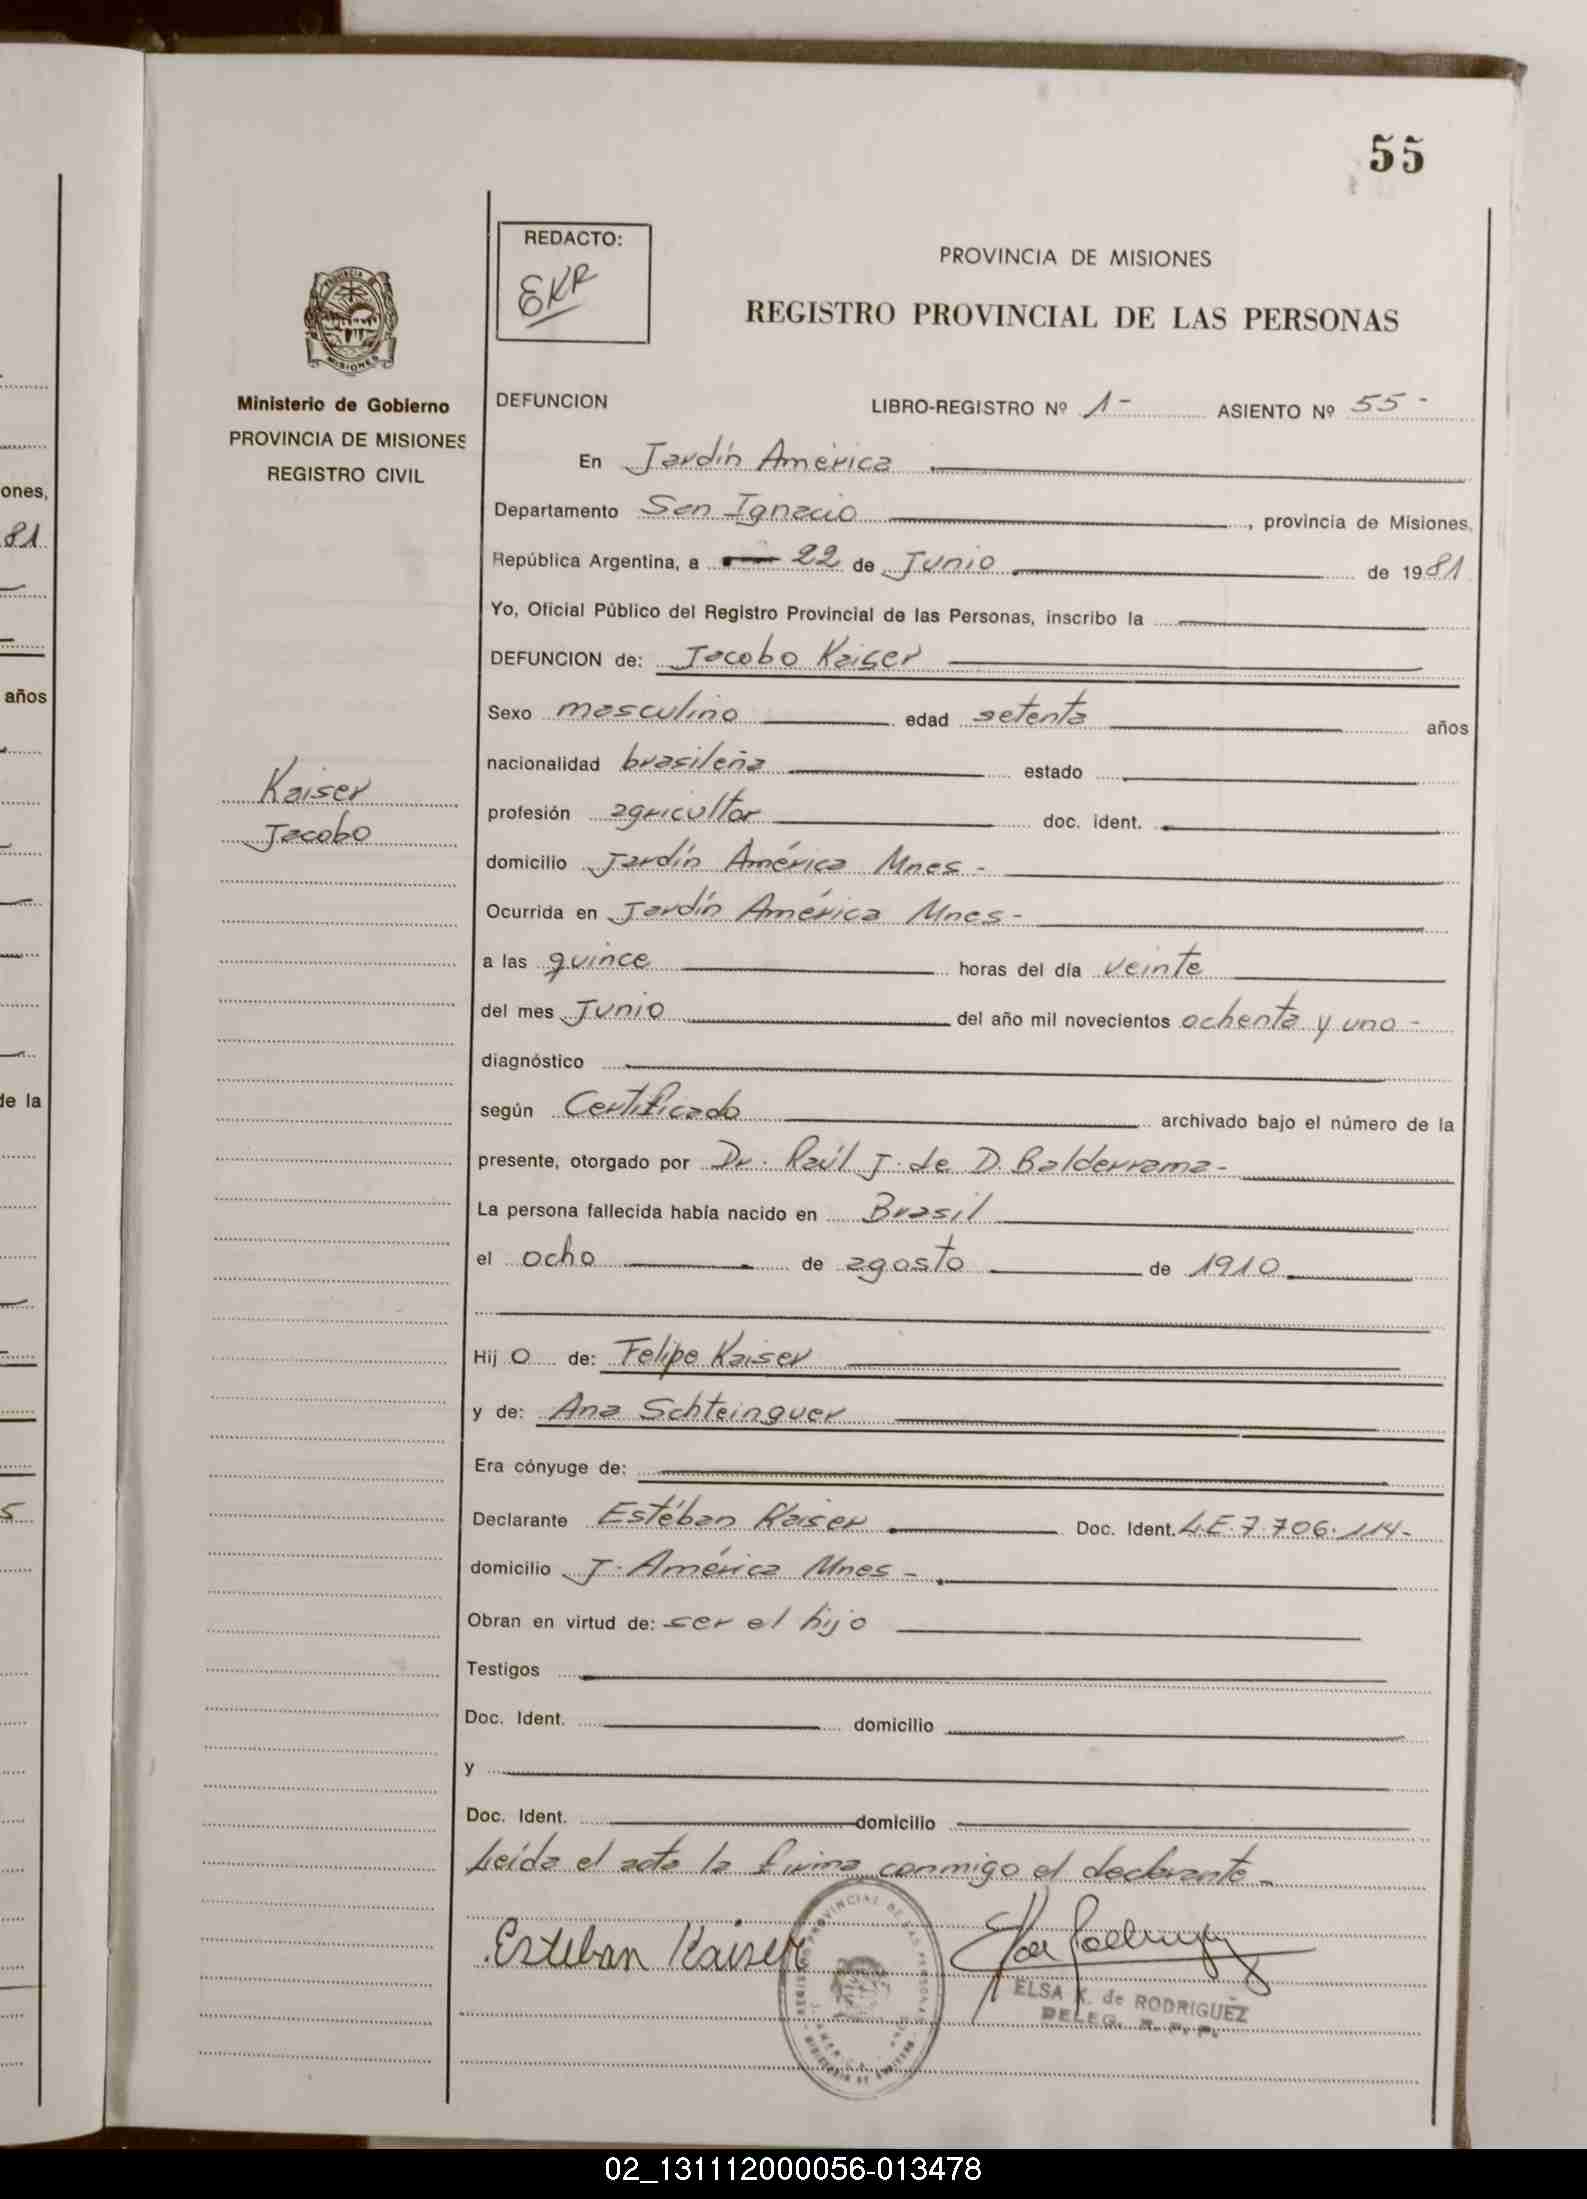 55
REDACTO:
EKR
PROVINCIA DE MISIONES
REGISTRO PROVINCIAL DE LAS PERSONAS
Ministerio de Gobierno
PROVINCIA DE MISIONES
REGISTRO CIVIL
Kaiser
Jacobo
DEFUNCION LIBRO-REGISTRO Nº 1- ASIENTO Nº 55-
En Jardín América
Departamento San Ignacio, provincia de Misiones,
República Argentina, a 22 de Junio de 1981
Yo, Oficial Público del Registro Provincial de las Personas, inscribo la
DEFUNCION de: Jacobo Kaiser
Sexo masculino edad setenta años
nacionalidad brasileña estado
profesión agricultor doc. ident.
domicilio Jardín América Mnes-
Ocurrida en Jardín América Mnes-
a las quince horas del día veinte
del mes Junio del año mil novecientos ochenta y uno-
diagnóstico
según Certificado archivado bajo el número de la
presente, otorgado por Dr. Raúl J. de D. Balderrama-
La persona fallecida había nacido en Brasil
el ocho de agosto de 1910
Hij o de: Felipe Kaiser
y de: Ana Schteinguer
Era cónyuge de:
Declarante Estéban Kaiser Doc. Ident. L.E. 7.706.114-
domicilio J. América Mnes-
Obran en virtud de: ser el hijo
Testigos
Doc. Ident. domicilio
y
Doc. Ident. domicilio
Leída el acta la firma conmigo el declarante-
Esteban Kaiser
ELSA K. de RODRIGUEZ
DELEG. R. P. P.
ones,
81
años
de la
5
02_131112000056-013478